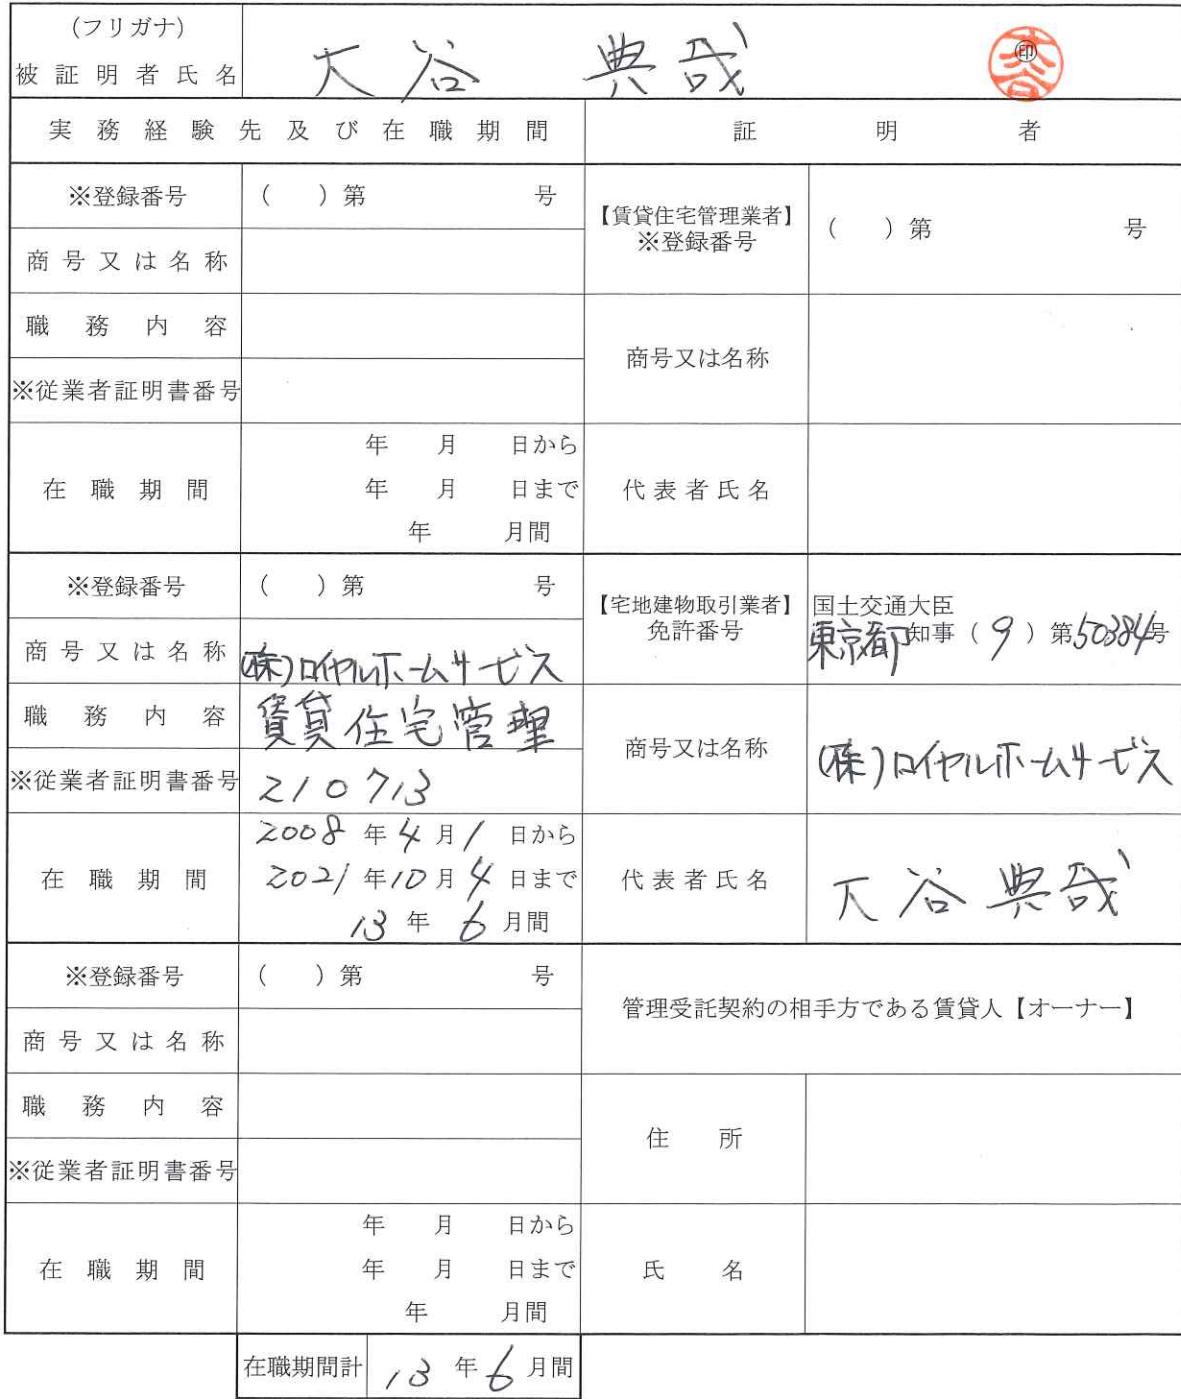 (フリガナ)
被証明者氏名 大谷 典哉 ㊞ 大谷
実務経験先及び在職期間 証明者
※登録番号 ( )第 号
【賃貸住宅管理業者】
※登録番号 ( )第 号
商号又は名称
職務内容
商号又は名称
※従業者証明書番号
在職期間 年 月 日から
年 月 日まで
年 月間
代表者氏名
※登録番号 ( )第 号
【宅地建物取引業者】
免許番号
国土交通大臣
東京都知事(9)第50384号
商号又は名称 (株)ロイヤルホームサービス
職務内容 賃貸住宅管理
商号又は名称 (株)ロイヤルホームサービス
※従業者証明書番号 210713
在職期間 2008年4月1日から
2021年10月4日まで
13年6月間
代表者氏名 大谷典哉
※登録番号 ( )第 号
管理受託契約の相手方である賃貸人【オーナー】
商号又は名称
職務内容
住所
※従業者証明書番号
在職期間 年 月 日から
年 月 日まで
年 月間
氏名
在職期間計 13年6月間